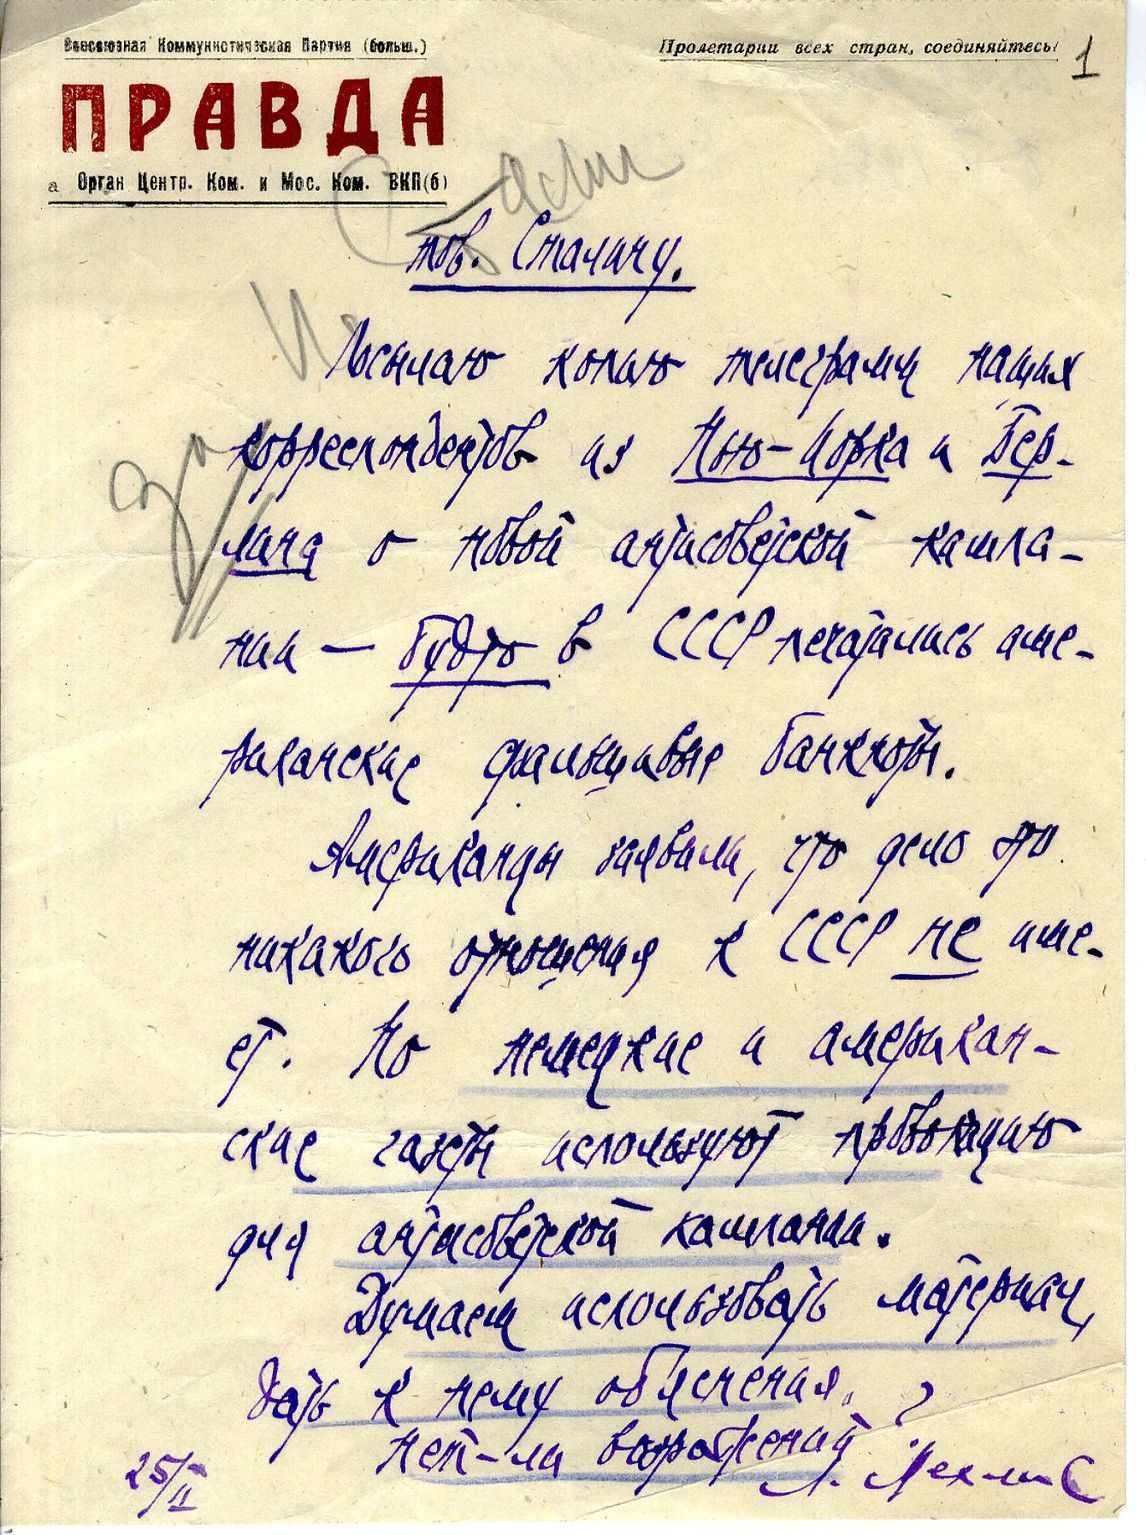 Всесоюзная Коммунистическая Партия (больш.)
Пролетарии всех стран, соединяйтесь!
1
ПРАВДА
Орган Центр. Ком. и Мос. Ком. ВКП(б)
тов. Сталину.
Посылаю копию телеграмм наших
корреспондентов из Нью-Иорка и Бер-
лина о новой антисоветской кампа-
нии — будто в СССР печатались аме-
риканские фальшивые банкноты.
Американцы заявили, что дело это
никакого отношения к СССР не име-
ет. Но немецкие и американ-
ские газеты используют провокацию
для антисоветской кампании.
Думаем использовать материал,
дать к нему об'яснения.
Нет-ли возражений?
25/II
Л. Мехлис